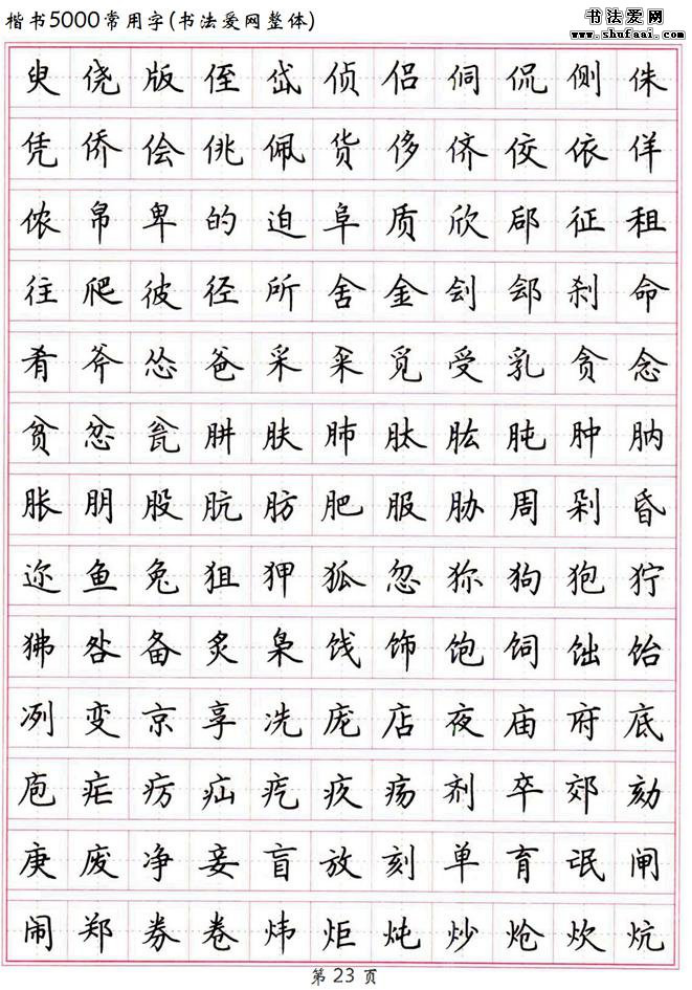 楷书5000常用字(书法爱网整体)
书法爱网
www.shufaai.com
臾侥版侄岱侦侣侗侃侧侏
凭侨侩佻佩货侈侪佼依佯
侬帛卑的迫阜质欣郈征徂
往爬彼径所舍金刽郐刹命
肴斧怂爸采籴觅受乳贪念
贫忿瓮肼肤肺肽肱肫肿肭
胀朋股肮肪肥服胁周剁昏
迩鱼兔狙狎狐忽狝狗狍狞
狒咎备炙枭饯饰饱饲饳饴
冽变京享冼庞店夜庙府底
庖疟疠疝疙疚疡剂卒郊劾
庚废净妾盲放刻单育氓闸
闹郑券卷炜炬炖炒炝炊炕
第 23 页